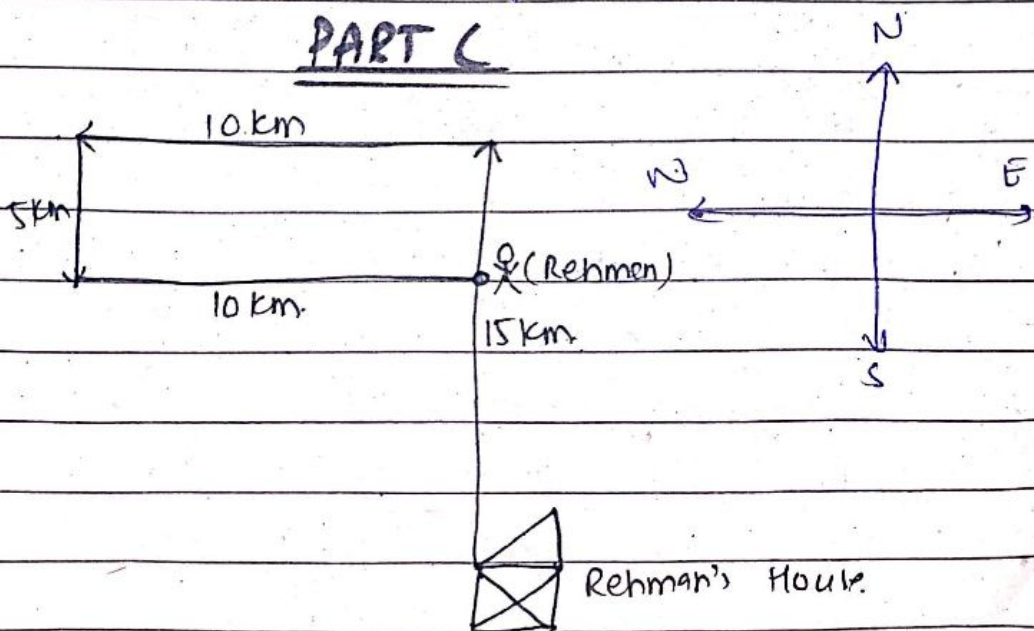 PART C
N
10 km
W
E
5km
(Rehman)
10 km.
15 km.
S
Rehman's House.